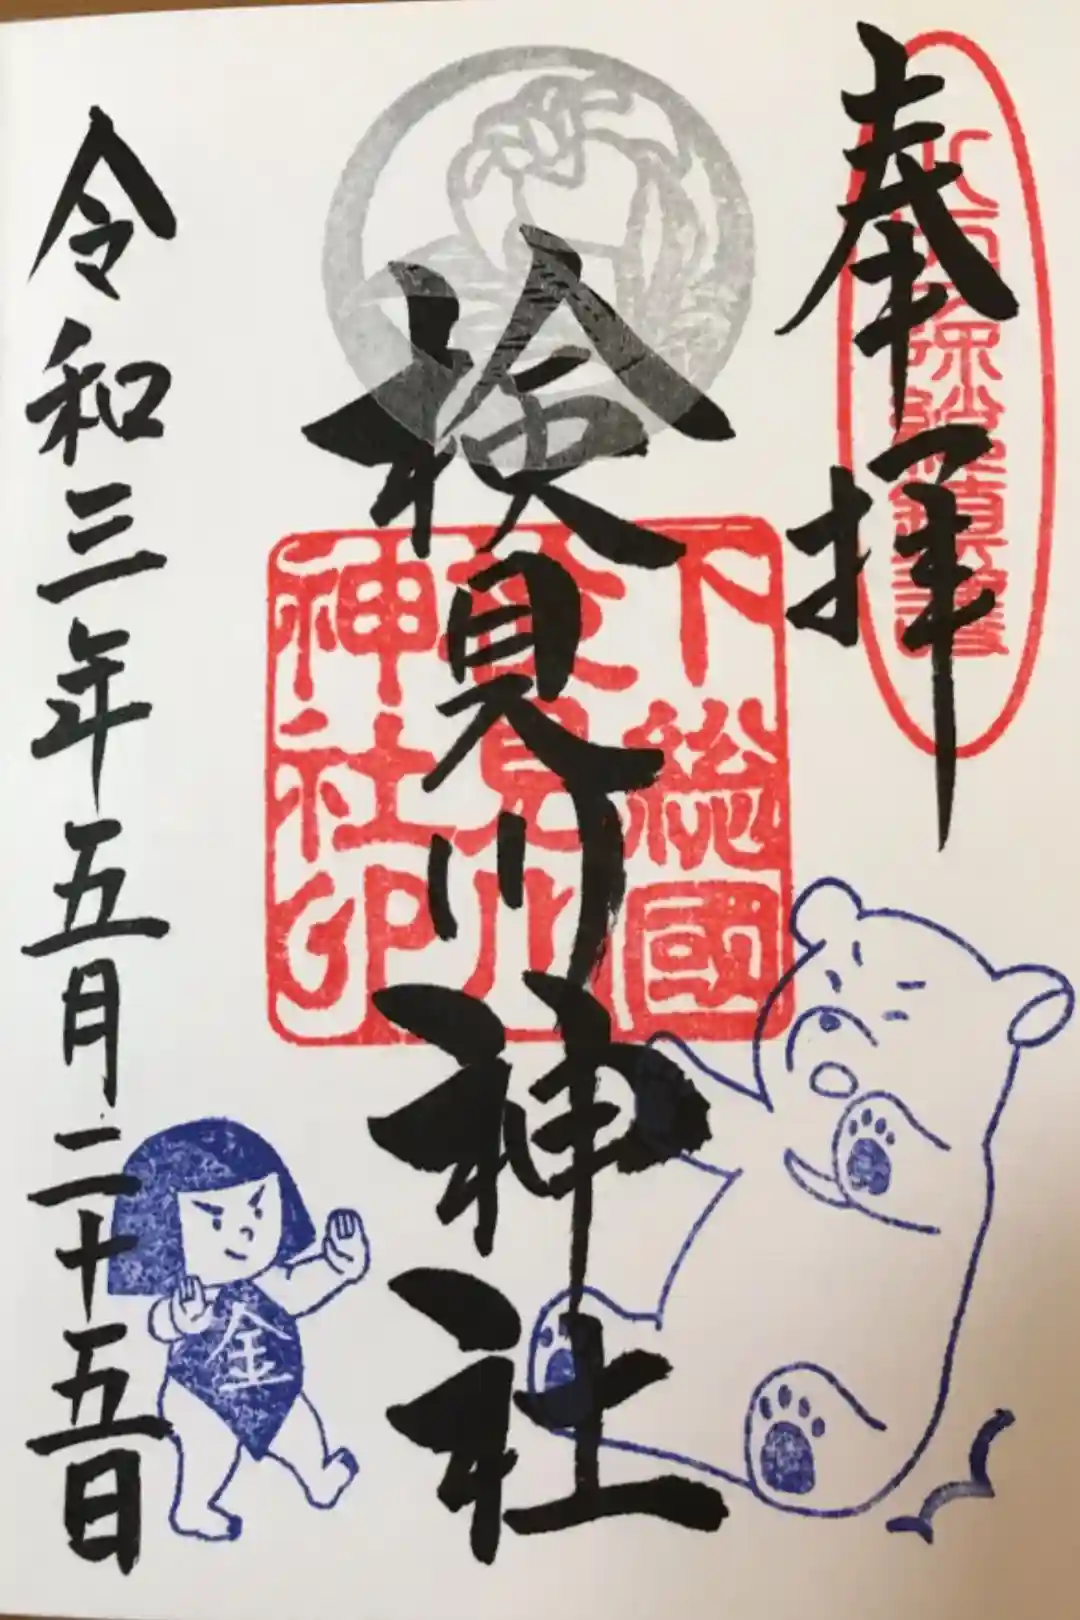 奉拝
下総國
検見川
神社印
検見川神社
令和三年五月二十五日
金